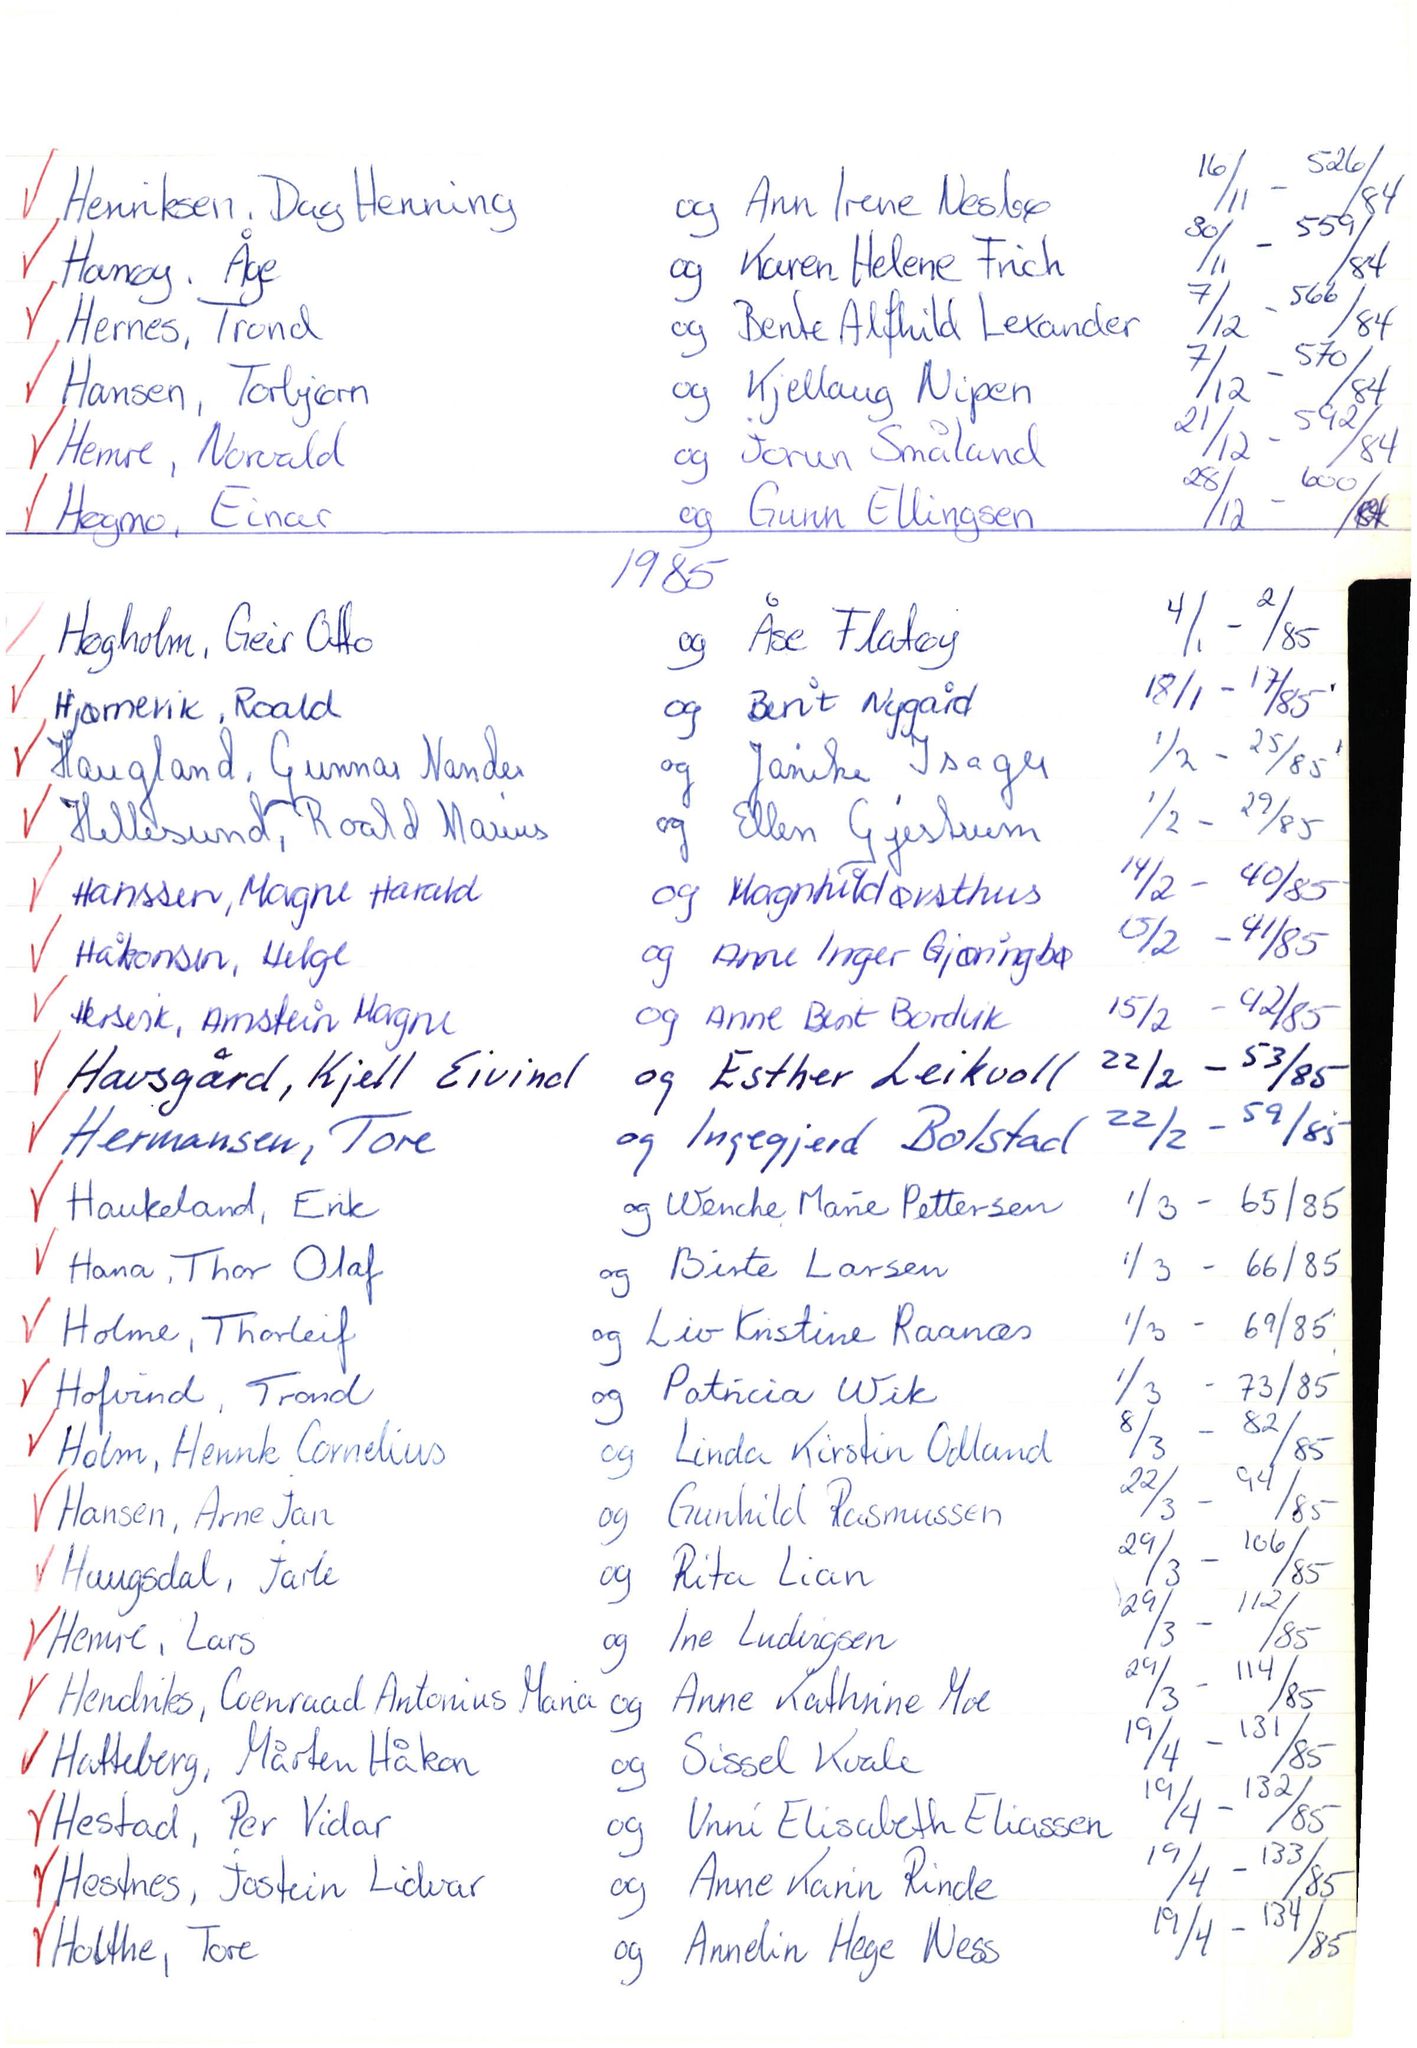 Henriksen, Dag Henning og Ann Irene Nesbø 16/11 - 526/84
Hamøy, Åge og Karen Helene Frich 30/11 - 559/84
Hernes, Trond og Bente Alfhild Lexander 7/12 - 566/84
Hansen, Torbjørn og Kjellaug Nipen 7/12 - 570/84
Hemre, Norvald og Jorun Småland 21/12 - 592/84
Høgmo, Einar og Gunn Ellingsen 28/12 - 600/84
1985
Høgholm, Geir Otto og Åse Flatøy 4/1 - 2/85
Hjørnevik, Roald og Berit Nygård 18/1 - 17/85
Haugland, Gunnar Nander og Janike Isager 1/2 - 25/85
Hellesund, Roald Marius og Ellen Gjestrum 1/2 - 29/85
Hanssen, Magne Harald og Magnhild Ørsthus 14/2 - 40/85
Håkonsen, Helge og Anne Inger Gjøringbø 15/2 - 41/85
Hersvik, Arnstein Magne og Anne Berit Bordvik 15/2 - 42/85
Havsgård, Kjell Eivind og Esther Leikvoll 22/2 - 53/85
Hermansen, Tore og Ingegjerd Bolstad 22/2 - 59/85
Haukeland, Erik og Wenche Marie Pettersen 1/3 - 65/85
Hana, Thor Olaf og Birte Larsen 1/3 - 66/85
Holme, Thorleif og Liv Kristine Raanæs 1/3 - 69/85
Hofvind, Trond og Patricia Wik 1/3 - 73/85
Holm, Henrik Cornelius og Linda Kirstin Odland 8/3 - 82/85
Hansen, Arne Jan og Gunhild Rasmussen 22/3 - 94/85
Haugsdal, Jarle og Rita Lian 29/3 - 106/85
Hemre, Lars og Ine Ludvigsen 29/3 - 112/85
Hendriks, Coenraad Antonius Maria og Anne Kathrine Moe 29/3 - 114/85
Hatteberg, Mårten Håkon og Sissel Kvale 19/4 - 131/85
Hestad, Per Vidar og Unni Elisabeth Eliassen 19/4 - 132/85
Hestnes, Jostein Lidvar og Anne Karin Rinde 19/4 - 133/85
Holthe, Tore og Annelin Hege Ness 19/4 - 134/85